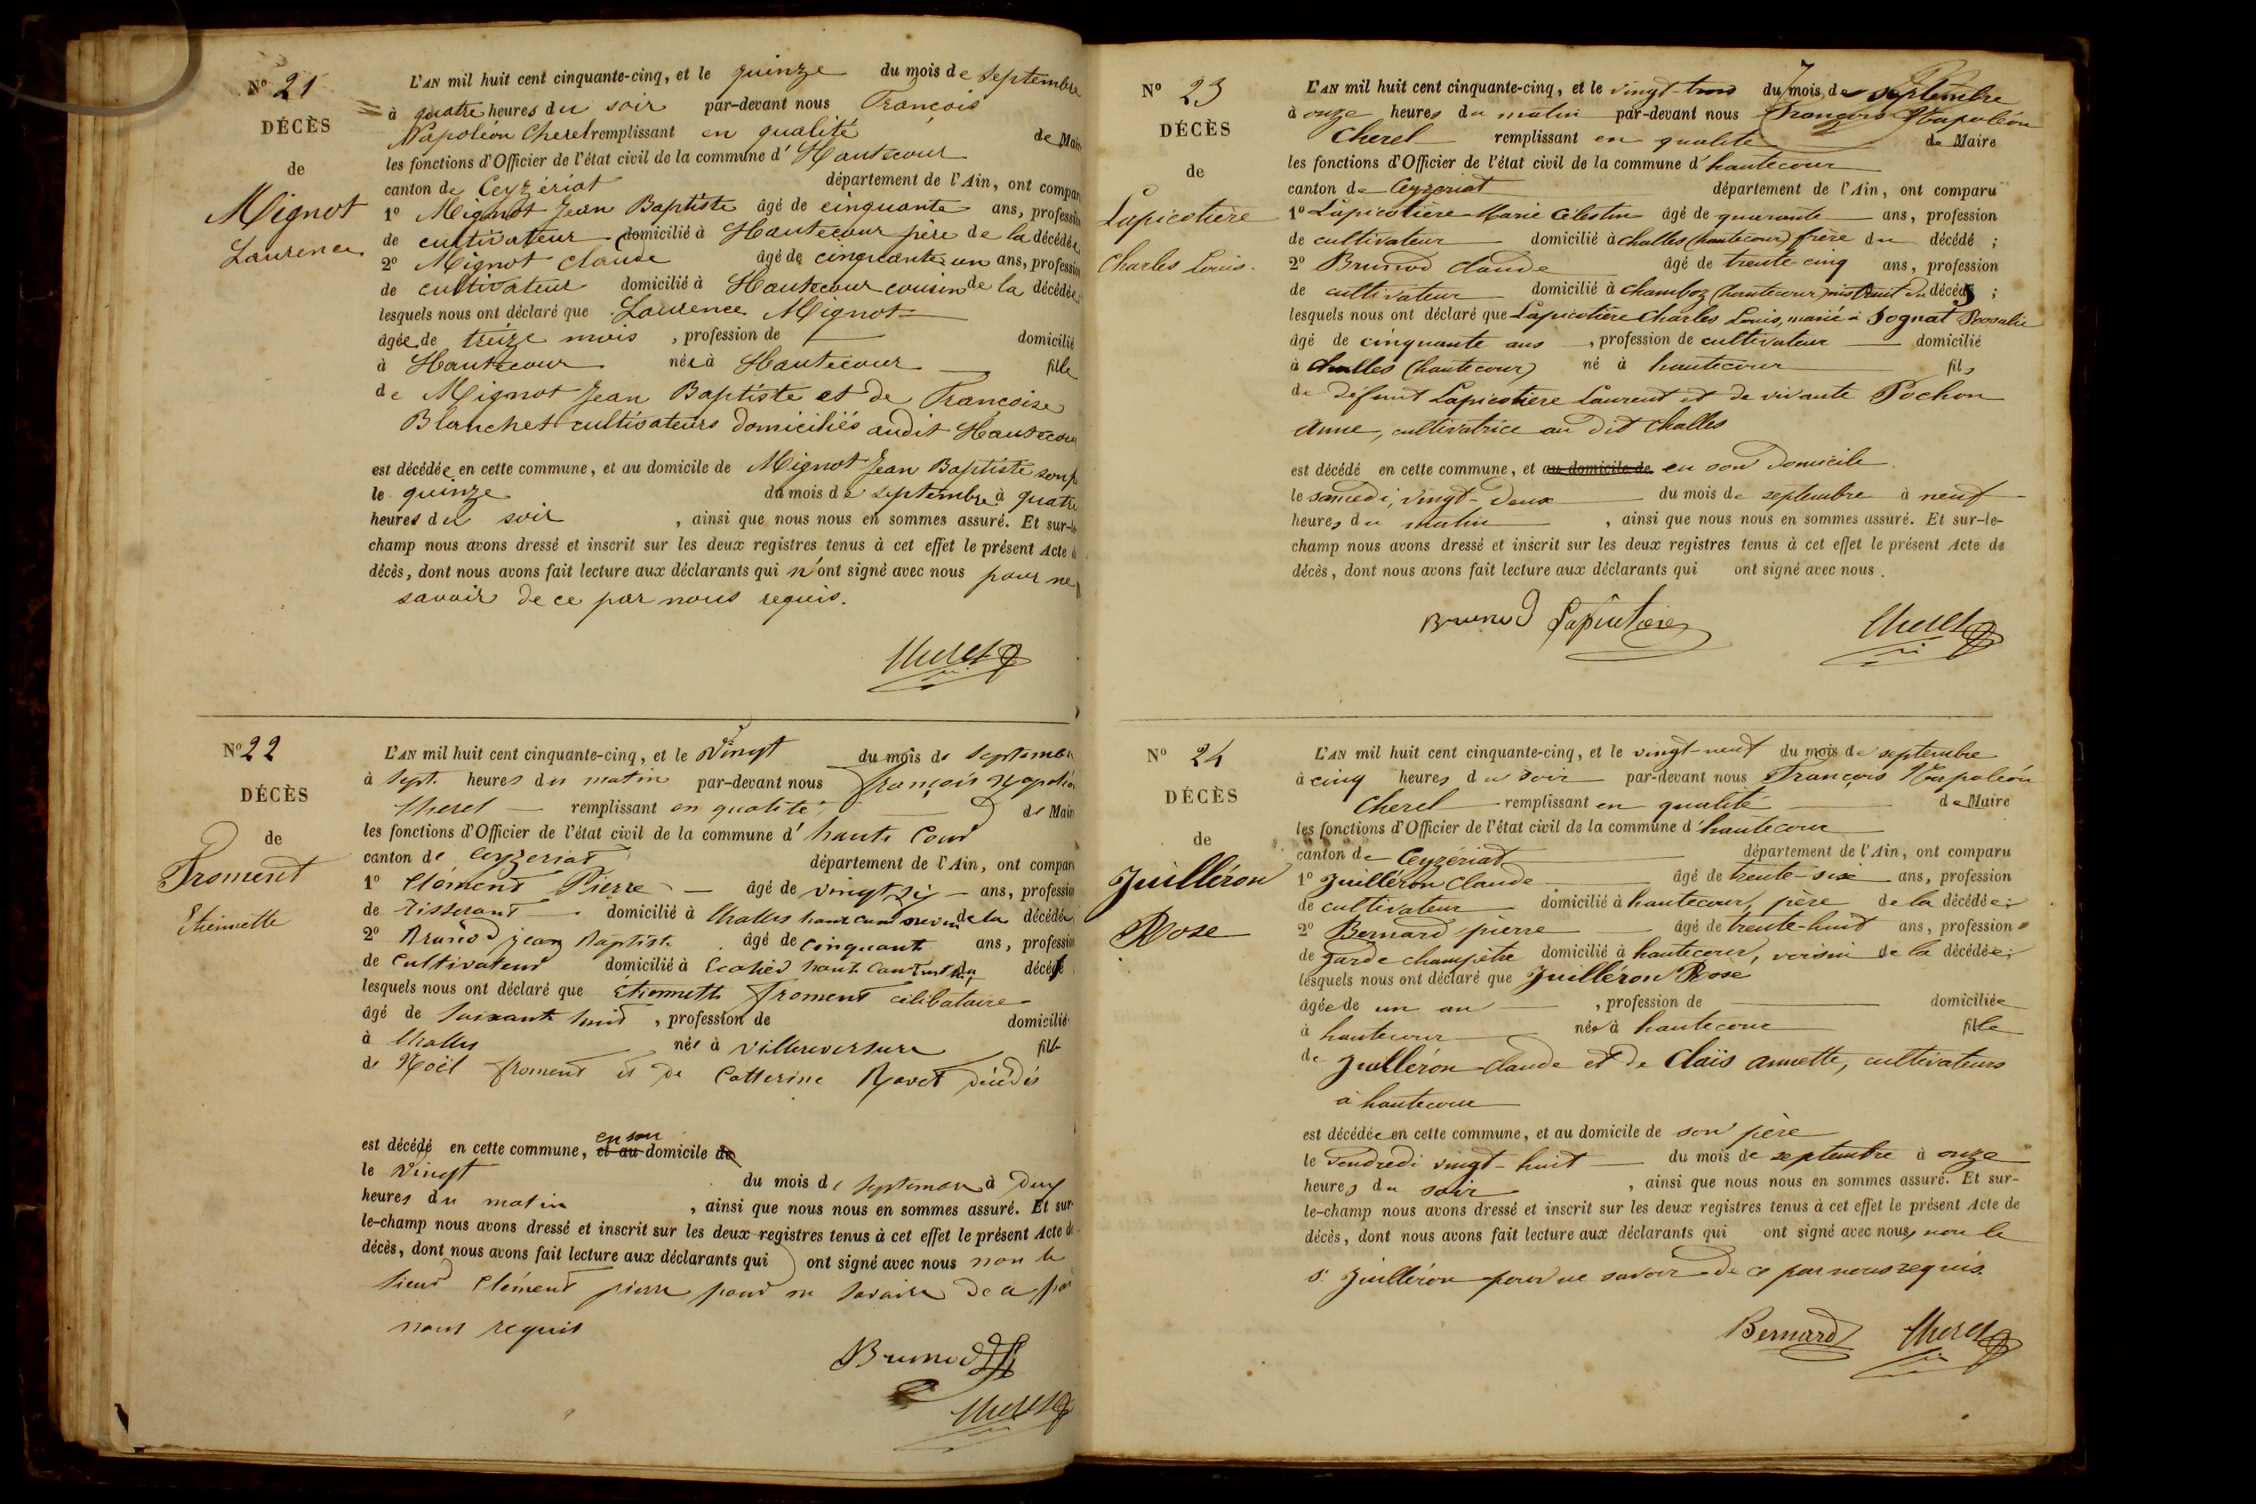 N° 21
DÉCÈS
de
Mignot
Laurence
L'AN mil huit cent cinquante-cinq, et le quinze du mois de septembre
à quatre heures du soir par-devant nous François
Napoléon Cherel remplissant en qualité de Mair
les fonctions d'Officier de l'état civil de la commune d' Hautecour
canton de Ceyzériat département de l'Ain, ont compar
1° Mignot Jean Baptiste âgé de cinquante ans, profession
de cultivateur domicilié à Hautecour père de la décédée
2° Mignot Claude âgé de cinquante un ans, profession
de cultivateur domicilié à Hautecour cousin de la décédée
lesquels nous ont déclaré que Laurence Mignot
âgée de treize mois, profession de domicilié
à Hautecour née à Hautecour fille
de Mignot Jean Baptiste et de Françoise
Blanchet cultivateurs domiciliés audit Hautecour
est décédée en cette commune, et au domicile de Mignot Jean Baptiste
le quinze du mois de septembre à quatre
heures du soir, ainsi que nous nous en sommes assuré. Et sur-le
champ nous avons dressé et inscrit sur les deux registres tenus à cet effet le présent Acte d
décès, dont nous avons fait lecture aux déclarants qui n'ont signé avec nous pour ne
savoir de ce par nous requis.
Cherel
N° 22
DÉCÈS
de
Froment
Etiennette
L'AN mil huit cent cinquante-cinq, et le Vingt du mois de septembre
à sept heures du matin par-devant nous françois Napoléon
Cherel remplissant en qualité de Mair
les fonctions d'Officier de l'état civil de la commune d' haute Cour
canton de Ceyzeriat département de l'Ain, ont compar
1° Clément Pierre âgé de vingt six ans, profession
de Tisserant domicilié à Challes haute cour neveu de la décédée
2° Brunod jean Baptiste âgé de cinquante ans, profession
de Cultivateur domicilié à haute Cour du décédé
lesquels nous ont déclaré que Etiennette froment célibataire
âgé de soixante huit, profession de domicilié
à Challes née à Villereversure fille
de Noël froment et de Catterine Ravet décédés
est décédé en cette commune, et au en son domicile de
le Vingt du mois de septembre à deux
heures du matin, ainsi que nous nous en sommes assuré. Et sur
le-champ nous avons dressé et inscrit sur les deux registres tenus à cet effet le présent Acte de
décès, dont nous avons fait lecture aux déclarants qui ont signé avec nous non le
sieur Clément pierre pour ne savoire de ce par
nous requis
Brunod
Cherel
N° 23
DÉCÈS
de
Lapicotière
Charles Louis.
L'AN mil huit cent cinquante-cinq, et le vingt-trois du mois de septembre
à onze heures du matin par-devant nous François Napoléon
Cherel remplissant en qualité de Maire
les fonctions d'Officier de l'état civil de la commune d'hautecour
canton de Ceyzeriat département de l'Ain, ont comparu
1° Lapicotière Marie Célestin âgé de quarante ans, profession
de cultivateur domicilié à challes (hautecour) frère du décédé;
2° Brunod Claude âgé de trente-cinq ans, profession
de cultivateur domicilié à chamboz (hautecour) du décédé;
lesquels nous ont déclaré que Lapicotière Charles Louis, marié à Sognat Rosalie
âgé de cinquante ans, profession de cultivateur domicilié
à Challes (hautecour) né à hautecour fils
de défunt Lapicotière Laurent et de vivante Pochon
Anne, cultivatrice au dit Challes
est décédé en cette commune, et au domicile de en son domicile
le samedi, vingt-deux du mois de septembre à neuf
heures du matin, ainsi que nous nous en sommes assuré. Et sur-le-
champ nous avons dressé et inscrit sur les deux registres tenus à cet effet le présent Acte de
décès, dont nous avons fait lecture aux déclarants qui ont signé avec nous.
Brunod Lapicotière Cherel
N° 24
DÉCÈS
de
Juilléron
Rose
L'AN mil huit cent cinquante-cinq, et le vingt-neuf du mois de septembre
à cinq heures du soir par-devant nous François Napoléon
Cherel remplissant en qualité de Maire
les fonctions d'Officier de l'état civil de la commune d'hautecour
canton de Ceyzériat département de l'Ain, ont comparu
1° Juilléron Claude âgé de trente-six ans, profession
de cultivateur domicilié à hautecour, père de la décédée;
2° Bernard pierre âgé de trente-huit ans, profession
de garde champêtre domicilié à hautecour, voisin de la décédée;
lesquels nous ont déclaré que Juilléron Rose
âgée de un an, profession de domiciliée
à hautecour née à hautecour fille
de Juilléron Claude et de Claïs annette, cultivateurs
à hautecour
est décédée en cette commune, et au domicile de son père
le Vendredi vingt-huit du mois de septembre à onze
heures du soir, ainsi que nous nous en sommes assuré. Et sur-
le-champ nous avons dressé et inscrit sur les deux registres tenus à cet effet le présent Acte de
décès, dont nous avons fait lecture aux déclarants qui ont signé avec nous, non le
s. Juilléron pour ne savoir de ce par nous requis.
Bernard Cherel